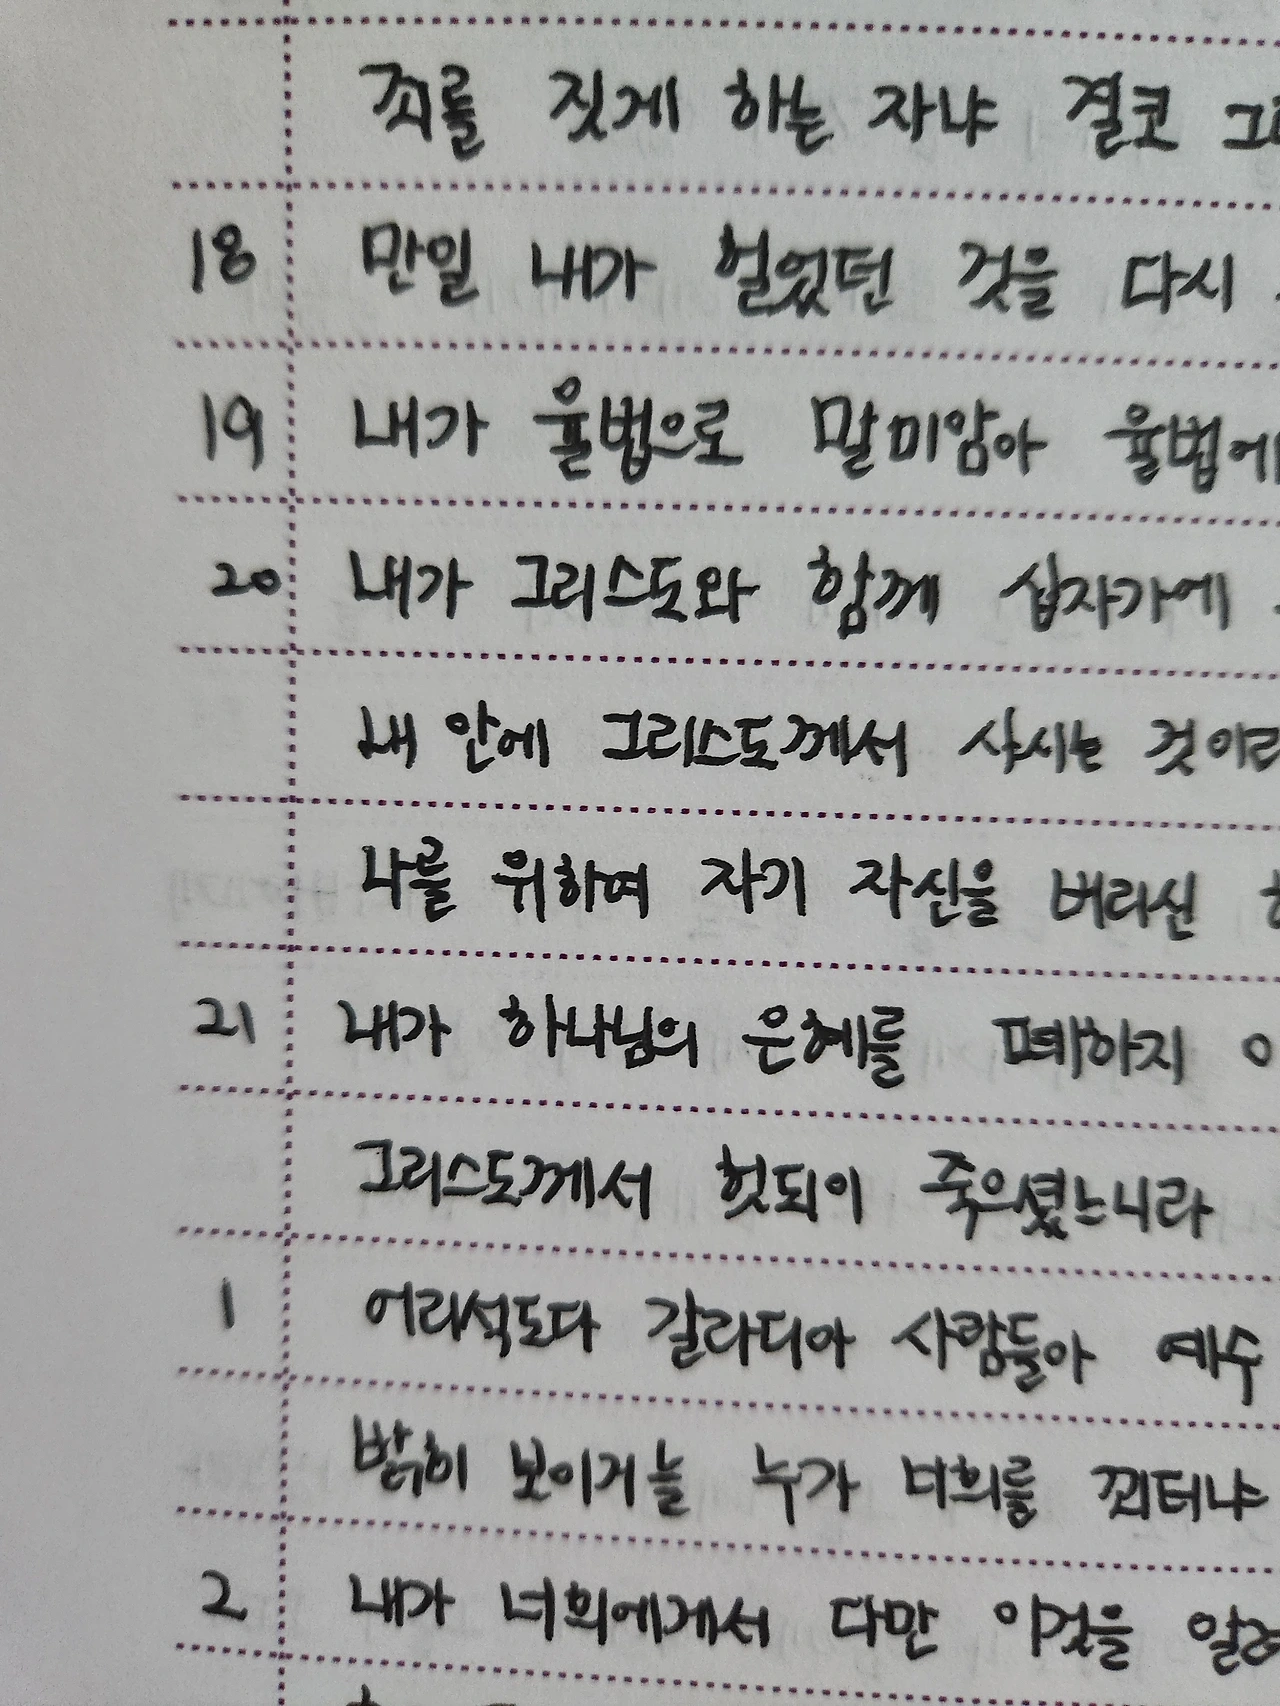 죄를 짓게 하는 자냐 결코
18 만일 내가 헐었던 것을 다시
19 내가 율법으로 말미암아 율법에
20 내가 그리스도와 함께 십자가에
내 안에 그리스도께서 사시는 것이라
나를 위하여 자기 자신을 버리신
21 내가 하나님의 은혜를 폐하지
그리스도께서 헛되이 죽으셨느니라
1 어리석도다 갈라디아 사람들아 예수
밝히 보이거늘 누가 너희를 꾀더냐
2 내가 너희에게서 다만 이것을